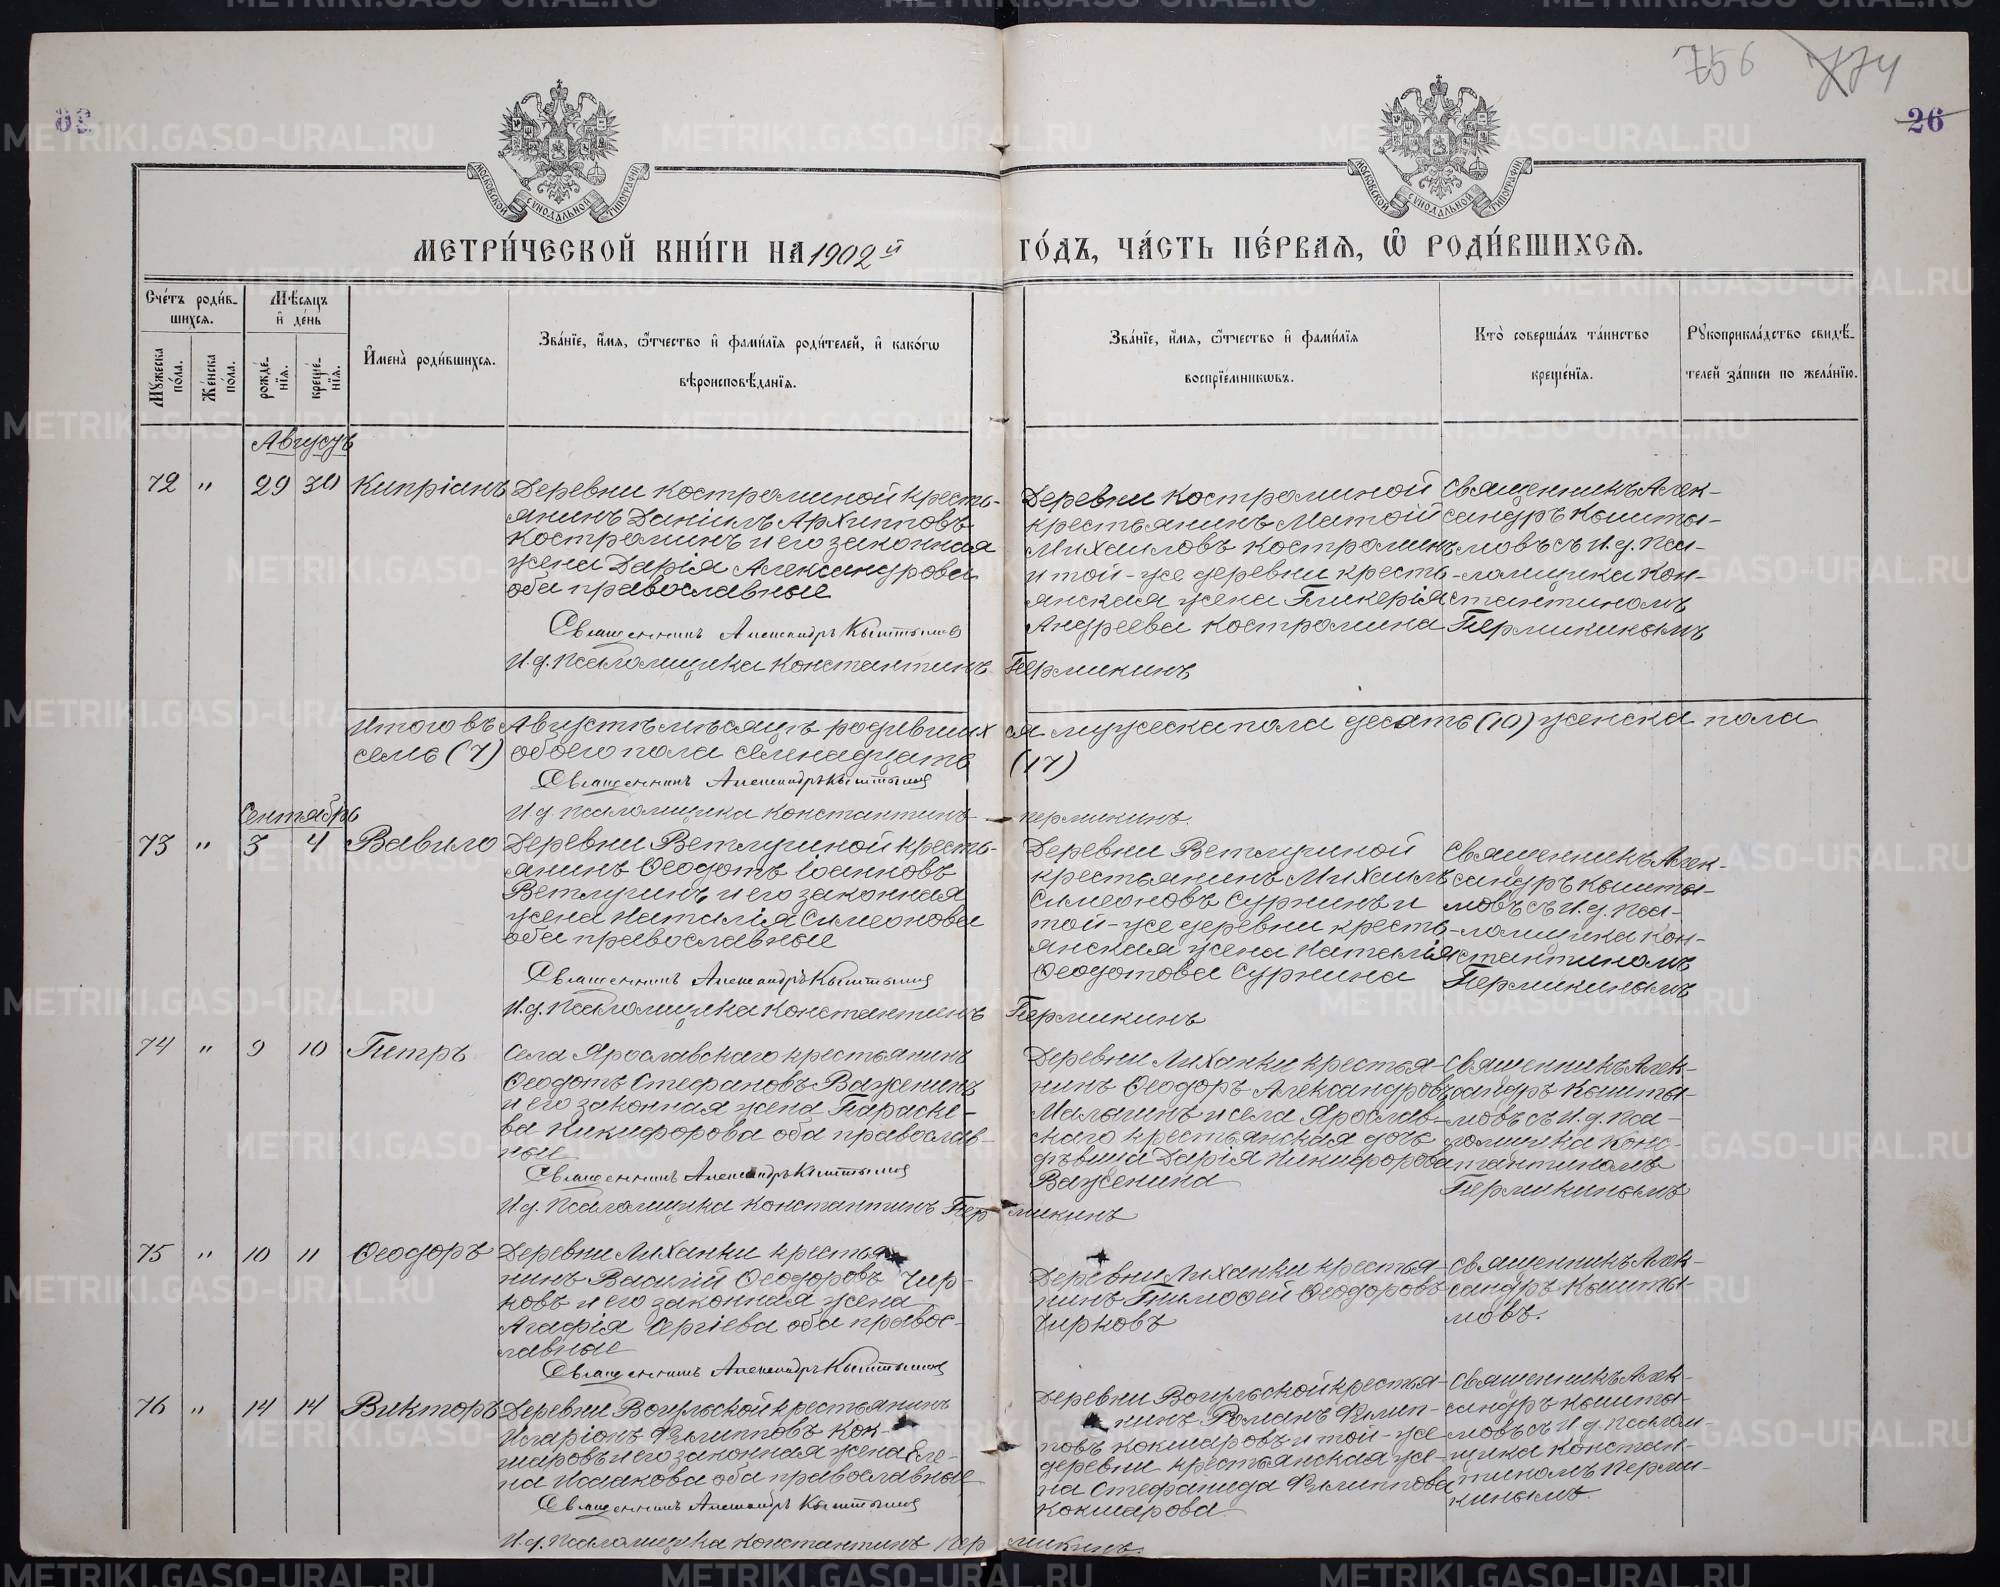 756 774
26
МОСКОВСКОЙ СѴНОДАЛЬНОЙ ТИПОГРАФІИ
МОСКОВСКОЙ СѴНОДАЛЬНОЙ ТИПОГРАФІИ
МЕТРИ́ЧЕСКОЙ КНИ́ГИ НА 1902й
ГО́ДЪ, ЧА́СТЬ ПЕ́РВАЯ, Ѡ РОДИ́ВШИХСЯ.
Сче́тъ роди́в-
шихся.
Мѣ́сяцъ
и де́нь
Мꙋжеска по́ла.
Же́нска по́ла.
рожде́-
нїя.
креще́-
нїя.
Имена̀ роди́вшихся.
Зва́нїе, и́мя, ѻ́тчество и фами́лїя роди́телей, и како́гѡ
вѣроисповѣ́данїя.
Зва́нїе, и́мя, ѻ́тчество и фами́лїя
воспрїе́мникѡвъ.
Кто̀ соверша́лъ та́инство
креще́нїя.
Рꙋкоприкла́дство свидѣ́-
телей за́писи по жела́нїю.
Августъ
72 " 29 30 Кипріанъ
Деревни Костроминой кресть-
янинъ Даніилъ Архиповъ
Костроминъ и его законная
жена Дарія Александрова
оба православные
Священникъ Александръ Кыштымов
И.д. Псаломщика Константинъ Пермикинъ
Деревни Костроминой
крестьянинъ Матѳій
Михаиловъ Костроминъ
и той-же деревни кресть-
янская жена Гликерія
Андреева Костромина
Священникъ Алек-
сандръ Кышты-
мовъ съ И.д. Пса-
ломщика Кон-
стантиномъ
Пермикинымъ
Итого въ Августѣ мѣсяцѣ родившихся мужеска пола десять (10) женска пола
семь (7) обоего пола семнадцать (17)
Священникъ Александръ Кыштымов
И.д. Псаломщика Константинъ Пермикинъ.
Сентябрь
73 " 3 4 Вавило
Деревни Ветлугиной кресть-
янинъ Ѳеодотъ Іоанновъ
Ветлугинъ и его законная
жена Наталія Симеонова
оба православные
Священникъ Александръ Кыштымов
И.д. Псаломщика Константинъ Пермикинъ
Деревни Ветлугиной
крестьянинъ Михаилъ
Симеоновъ Суркинъ и
той-же деревни кресть-
янская жена Наталія
Ѳеодотова Суркина
Священникъ Алек-
сандръ Кышты-
мовъ съ И.д. Пса-
ломщика Кон-
стантиномъ
Пермикинымъ
74 " 9 10 Петръ
Села Ярославскаго крестьянинъ
Ѳеодотъ Стефановъ Важенинъ
и его законная жена Параске-
ва Никифорова оба православ-
ные
Священникъ Александръ Кыштымов
И.д. Псаломщика Константинъ Пермикинъ
Деревни Лиханки крестья-
нинъ Ѳеодоръ Александровъ
Малыгинъ и села Ярослав-
скаго крестьянская дочь
дѣвица Дарія Никифорова
Важенина
Священникъ Алек-
сандръ Кышты-
мовъ съ И.д. Пса-
ломщика Конс-
тантиномъ
Пермикинымъ
75 " 10 11 Ѳеодоръ
Деревни Лиханки крестья-
нинъ Василій Ѳеодоровъ Чир-
ковъ и его законная жена
Агафія Сергіева оба правос-
лавные
Священникъ Александръ Кыштымов
Деревни Лиханки крестья-
нинъ Тимофей Ѳеодоровъ
Чирковъ
Священникъ Алек-
сандръ Кышты-
мовъ.
76 " 14 14 Викторъ
Деревни Вогульской крестьянинъ
Иларіонъ Филипповъ Кок-
шаровъ и его законная жена Еле-
на Исаакова оба православные
Священникъ Александръ Кыштымов
И.д. Псаломщика Константинъ Пермикинъ.
Деревни Вогульской крестья-
нинъ Романъ Филип-
повъ Кокшаровъ и той-же
деревни крестьянская же-
на Стефанида Филиппова
Кокшарова
Священникъ Алек-
сандръ Кышты-
мовъ съ И.д. Псалом-
щика Констан-
тиномъ Перми-
кинымъ.
METRIKI.GASO-URAL.RU